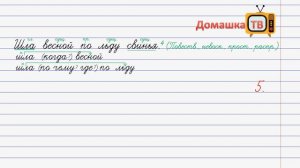 Домашка
ТВ
Шла весной по льду свинья.⁴ (Повеств. невоскл. прост. распр.)
шла (когда?) весной
шла (по чему? где?) по льду
5.